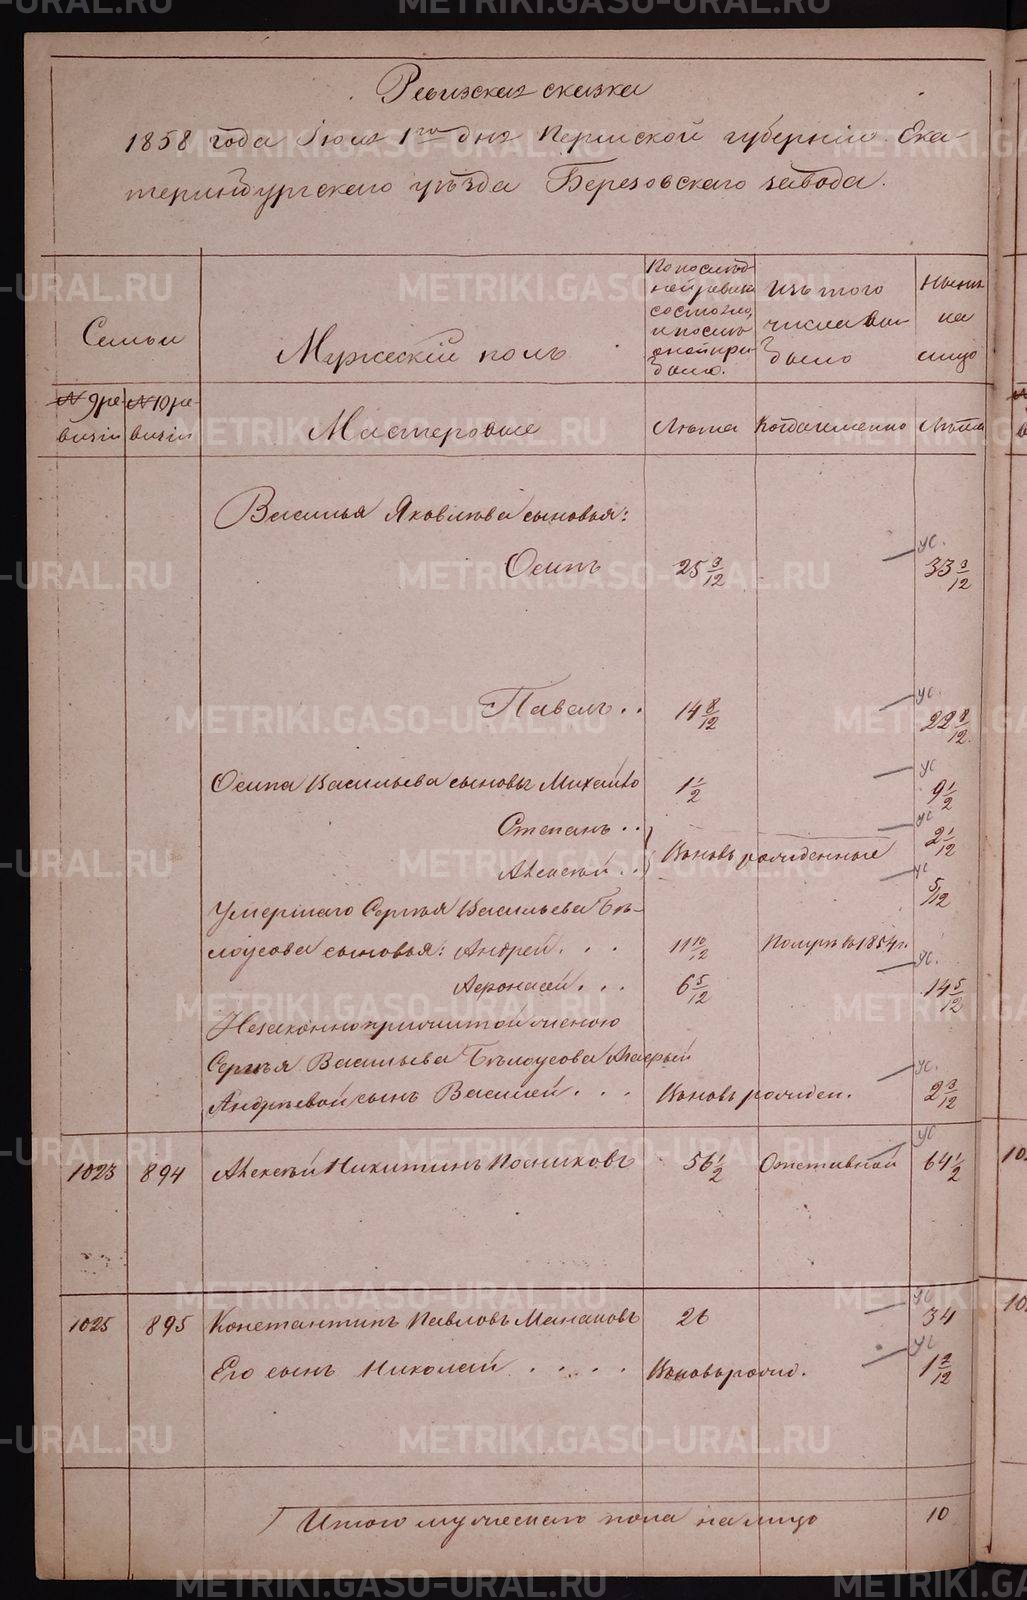 Ревизская сказка
1858 года Июня 1го дня Пермской губернiи Ека-
теринбургскаго уѣзда Березовскаго завода.
Семьи
Мужескiй полъ
По послѣд-
ней ревизiи
состояло,
и послѣ
оной при-
было.
Изъ того
числа вы-
было
Нынѣ
на
лицо
№ 9 ре-
визiи
№ 10 ре-
визiи
Мастеровые
Лѣта
Когда именно
Лѣта
Василья Яковлева сыновья:
Осипъ 25 3/12 ус. 33 3/12
Павелъ . . 14 8/12 ус. 22 8/12
Осипа Васильева сыновья Михайло 1 1/2 ус 9 1/2
Степанъ . . ус 2 1/12
Алексѣй . . Вновь рожденные ус 5/12
Умершаго Сергѣя Васильева Бѣ-
лоусова сыновья: Андрей . . . 11 10/12 Померъ въ 1854 г.
Афонасей . . . 6 5/12 ус. 14 5/12
Незаконноприжитой женою
Сергѣя Васильева Бѣлоусова
Андрѣевой сынъ Василей . . . Вновь рожден. ус. 2 3/12
1023 894 Алексѣй Никитинъ 56 1/2 Отставной ус 64 1/2
1025 895 Константинъ Павловъ 26 ус 34
Его сынъ Николай . . . . Вновь рожд. ус 1 2/12
Итого мужескаго пола на лицо 10
METRIKI.GASO-URAL.RU